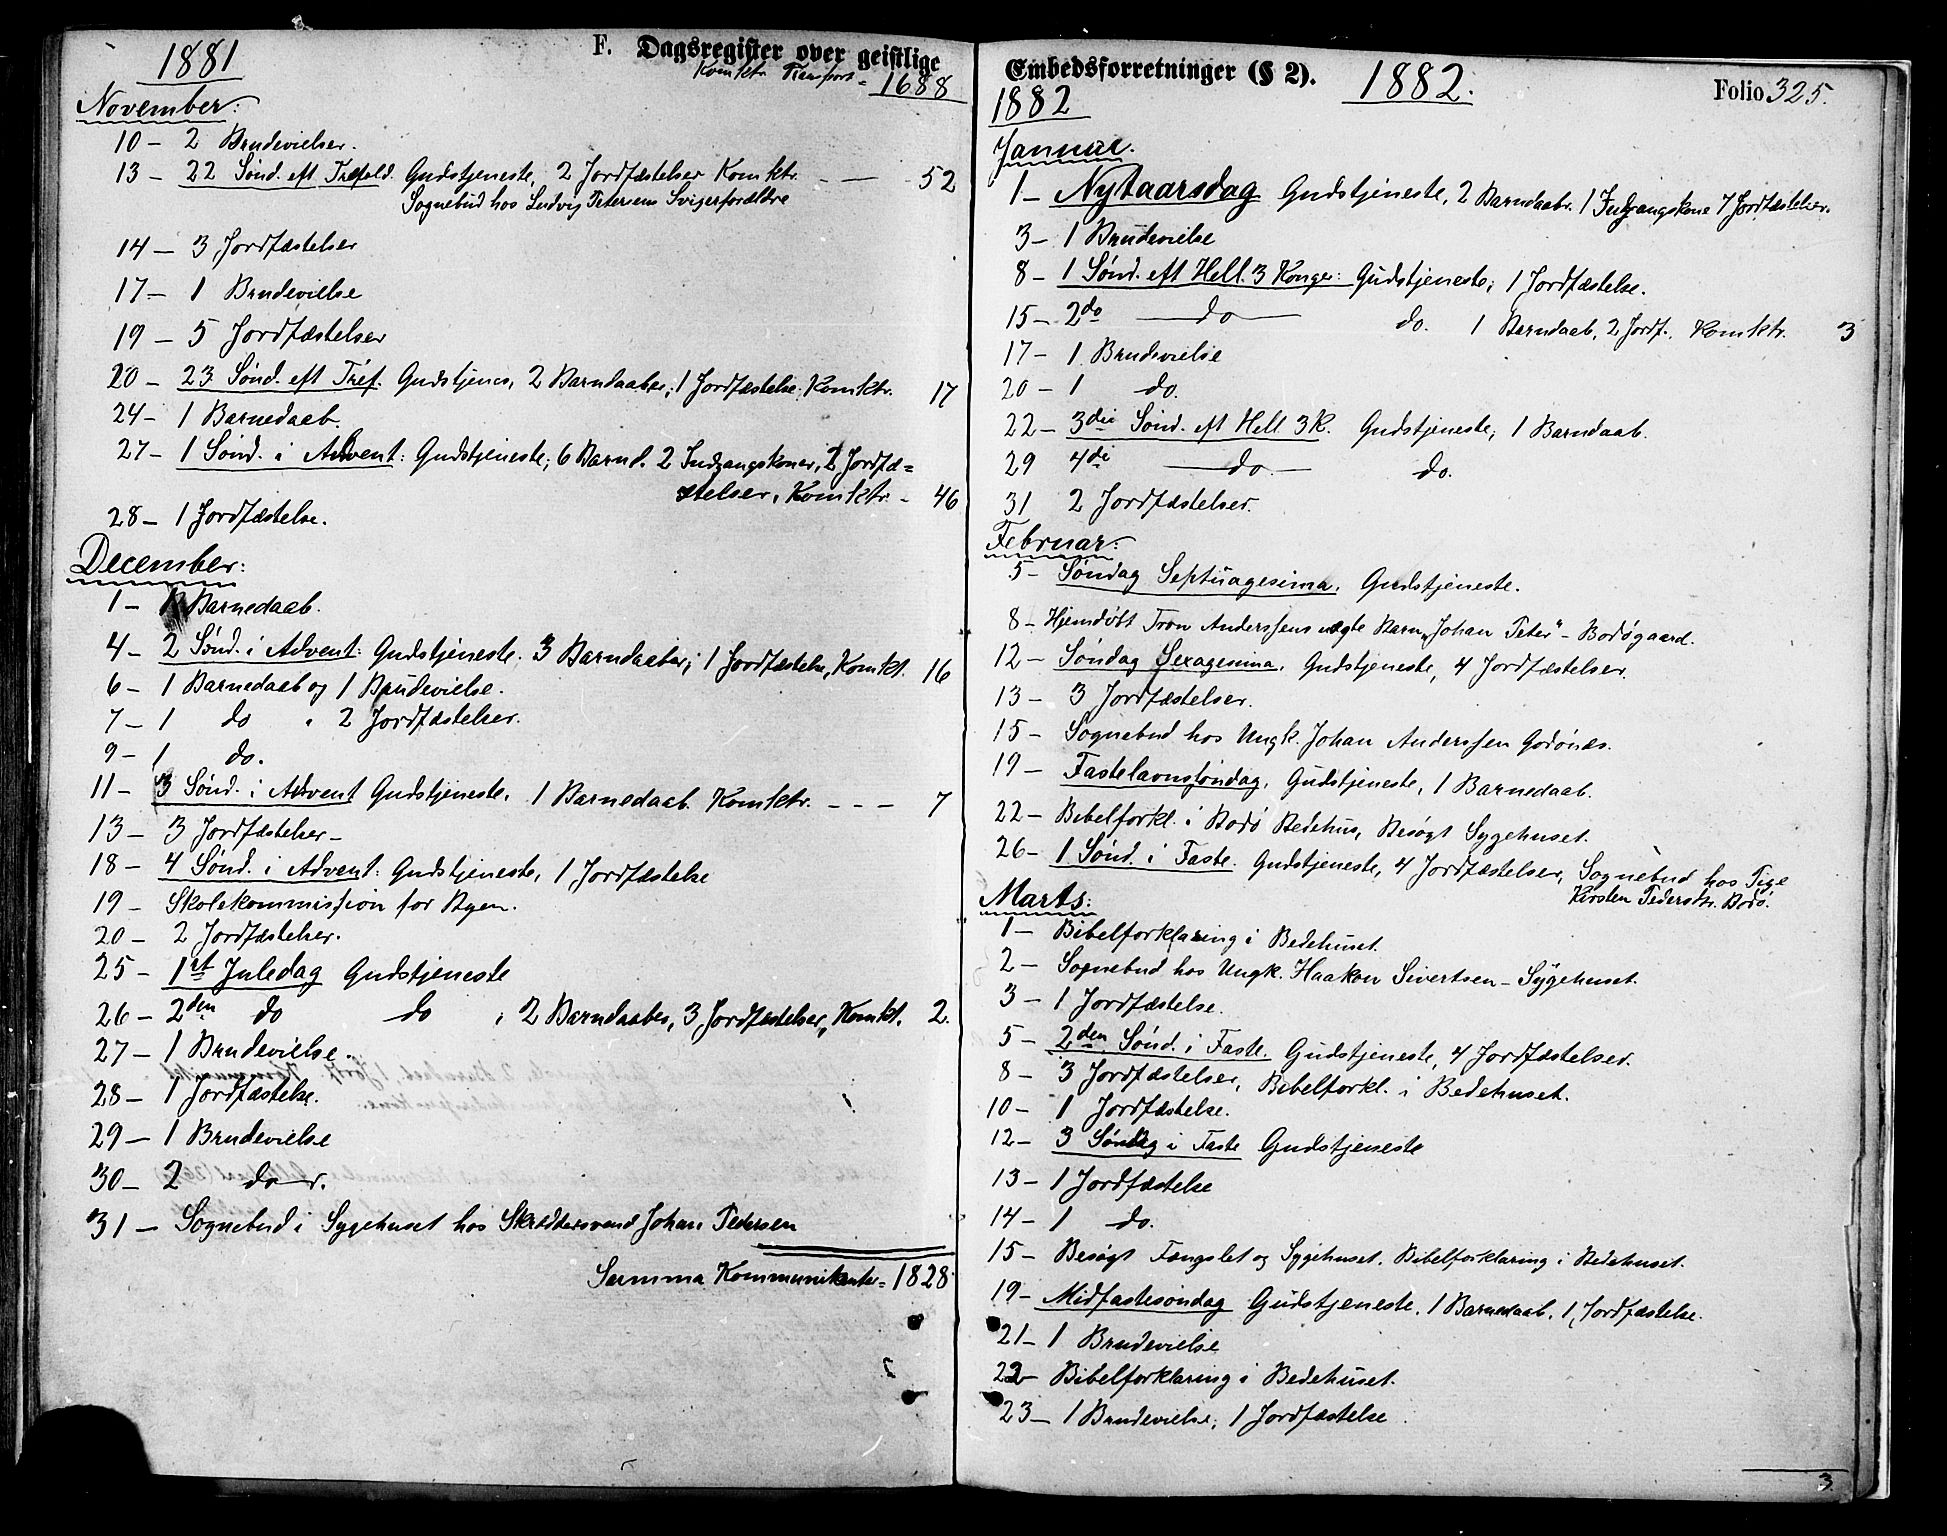 1881
F. Dagsregister over geistlige
Komktr. Transport = 1688
November:
10 – 2 Brudevielser.
13 – 22 Sønd. eft Trefold. Gudstjeneste, 2 Jordfæstelser Komktr. – — 52
Sognebud hos Ludvig Petersens Svigerforældre
14 – 3 Jordfæstelser
17 – 1 Brudevielse
19 – 5 Jordfæstelser
20 – 23 Sønd. eft Tref. Gudstjenes, 2 Barndaaber, 1 Jordfæstelse, Komktr. 17
24 – 1 Barnedaab.
27 – 1 Sønd. i Advent: Gudstjeneste; 6 Barnd. 2 Indgangskoner, 2 Jordfæ=
stelser, Komktr. – 46
28 – 1 Jordfæstelse.
December:
1 – 1 Barnedaab.
4 – 2 Sønd. i Advent: Gudstjeneste. 3 Barndaaber; 1 Jordfæstelse, Komkt. 16
6 – 1 Barnedaab og 1 Brudevielse.
7 – 1 do 2 Jordfæstelser.
9 – 1 do.
11 – 3 Sønd. i Advent Gudstjeneste. 1 Barnedaab. Komktr. – – – 7
13 – 3 Jordfæstelser –
18 – 4 Sønd. i Advent: Gudstjeneste, 1 Jordfæstelse
19 – Skolekommission for Byen.
20 – 2 Jordfæstelser.
25 – 1st Juledag Gudstjeneste
26 – 2den do do , 2 Barndaaber, 3 Jordfæstelser, Komkt. 2.
27 – 1 Brudevielse.
28 – 1 Jordfæstelse.
29 – 1 Brudevielse
30 – 2 do r.
31 – Sognebud i Sygehuset hos Skræddersvend Johan Pedersen
Summa Kommunikanter = 1828
Embedsforretninger (§ 2). 1882. Folio 325.
1882
Januar.
1 – Nytaarsdag Gudstjeneste, 2 Barndaabr. 1 Indgangskone 7 Jordfæstelser.
3 – 1 Brudevielse
8 – 1 Sønd. eft Hell. 3 Konger: Gudstjeneste; 1 Jordfæstelse.
15 – 2do — do — do. 1 Barndaab, 2 Jordf., Komktr. 3
17 – 1 Brudevielse
20 – 1 do.
22 – 3die Sønd. eft Hell 3K. Gudstjeneste; 1 Barndaab.
29 4di — do — do.
31 2 Jordfæstelser.
Februar:
5 – Søndag Septuagesima. Gudstjeneste.
8 – Hjemdøbt Tron Anderssens uægte Barn „Johan Peter" – Bodøgaard.
12 – Søndag Sexagesima. Gudstjeneste, 4 Jordfæstelser.
13 – 3 Jordfæstelser.
15 – Sognebud hos Ungk. Johan Anderssen Godønes.
19 – Fastelavnssøndag, Gudstjeneste, 1 Barnedaab.
22 – Bibelforkl. i Bodø Bedehus, Besøgt Sygehuset.
26 – 1 Sønd. i Faste. Gudstjeneste, 4 Jordfæstelser, Sognebud hos Pige
Kirsten Pedersdtr. Bodø.
Marts:
1 – Bibelforklaring i Bedehuset.
2 – Sognebud hos Ungk. Haakon Sivertsen – Sygehuset.
3 – 1 Jordfæstelse.
5 – 2den Sønd. i Faste. Gudstjeneste, 4 Jordfæstelser.
8 – 3 Jordfæstelser, Bibelforkl. i Bedehuset.
10 – 1 Jordfæstelse.
12 – 3 Søndag i Faste Gudstjeneste
13 – 1 Jordfæstelse
14 – 1 do.
15 – Besøgt Fængslet og Sygehuset. Bibelforklaring i Bedehuset.
19 – Midfastesøndag Gudstjeneste. 1 Barnedaab. 1 Jordfæstelse.
21 – 1 Brudevielse
22 – Bibelforklaring i Bedehuset.
23 – 1 Brudevielse; 1 Jordfæstelse.
3.